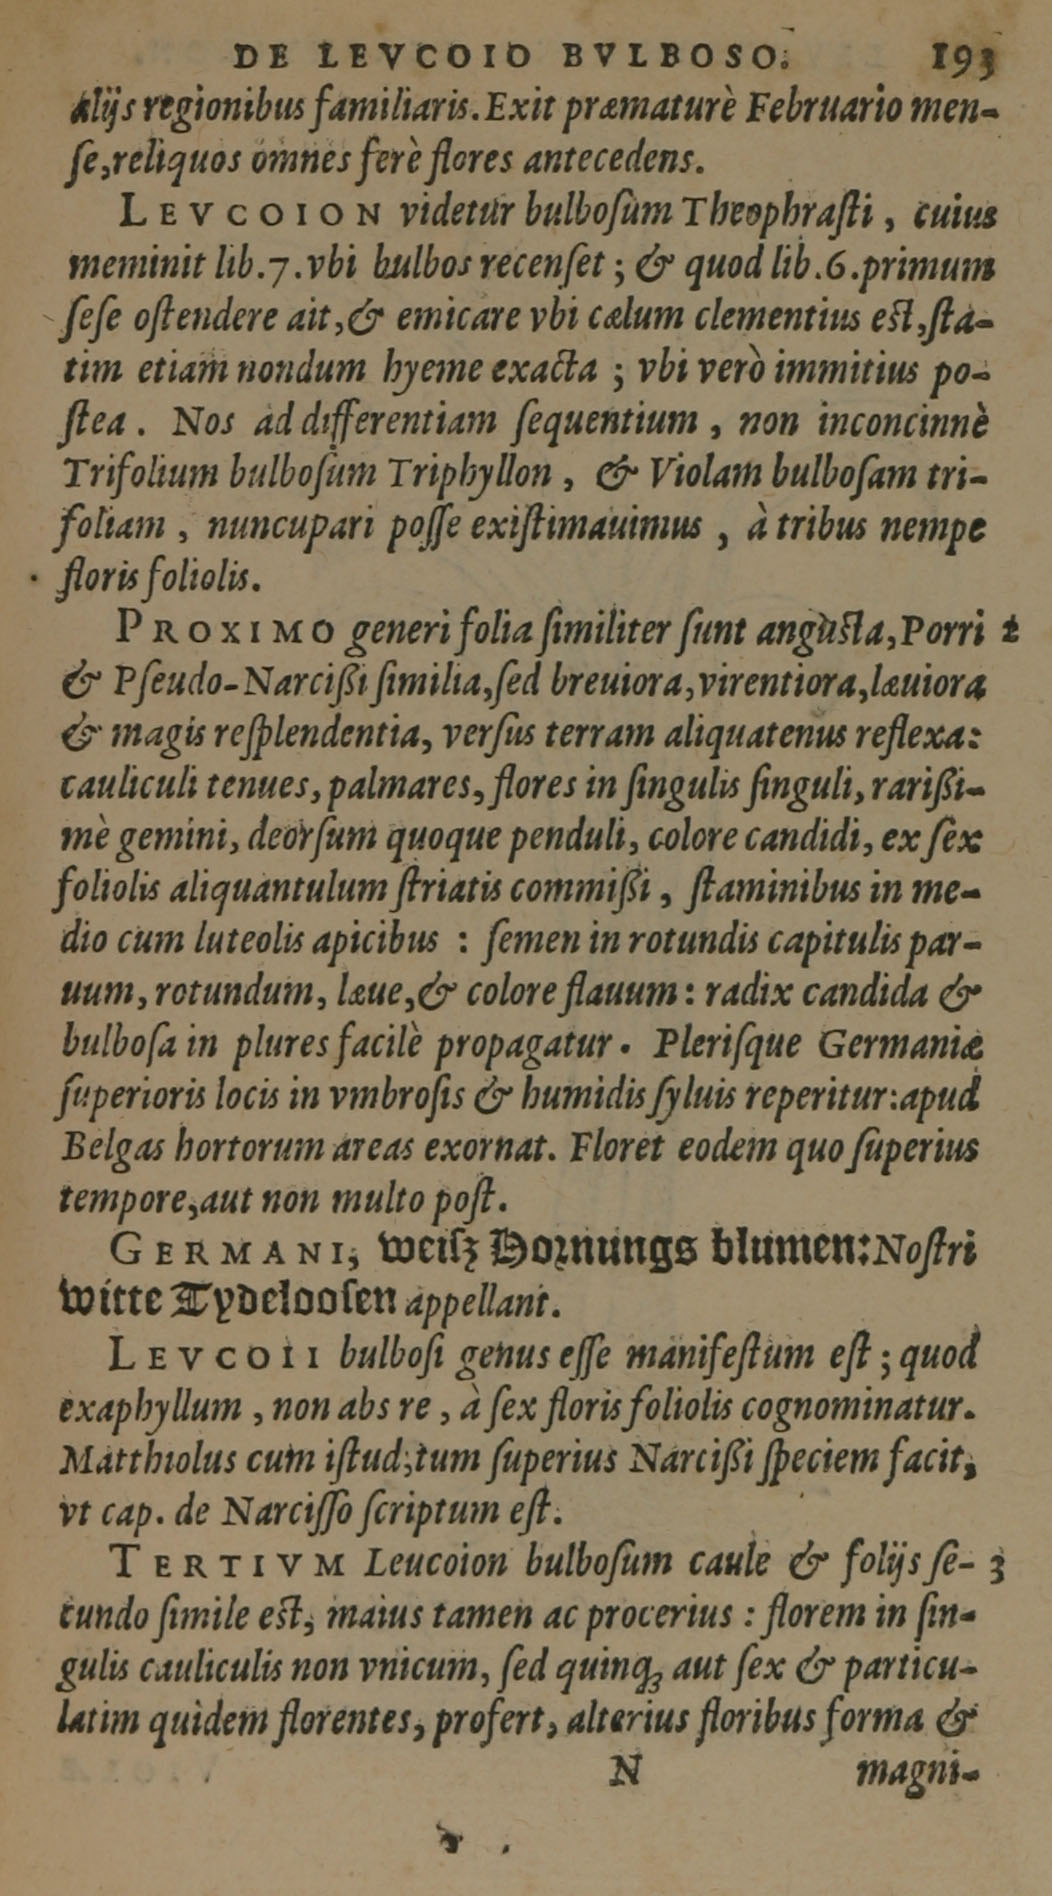 DE LEVCOIO BVLBOSO. 193
alijs regionibus familiaris. Exit præmaturè Februario men-
ſe, reliquos omnes ferè flores antecedens.
LEVCOION videtur bulboſum Theophraſti, cuius
meminit lib.7.vbi bulbos recenſet; & quod lib.6.primum
ſeſe oſtendere ait, & emicare vbi cælum clementius eſt, ſta-
tim etiam nondum hyeme exacta; vbi verò immitius po-
ſtea. Nos ad differentiam ſequentium, non inconcinnè
Trifolium bulboſum Triphyllon, & Violam bulboſam tri-
foliam, nuncupari poſſe exiſtimauimus, à tribus nempe
floris foliolis.
PROXIMO generi folia ſimiliter ſunt anguſta, Porri 2
& Pſeudo-Narcißi ſimilia, ſed breuiora, virentiora, læuiora
& magis reſplendentia, verſus terram aliquatenus reflexa:
cauliculi tenues, palmares, flores in ſingulis ſinguli, rarißi-
mè gemini, deorſum quoque penduli, colore candidi, ex ſex
foliolis aliquantulum ſtriatis commißi, ſtaminibus in me-
dio cum luteolis apicibus: ſemen in rotundis capitulis par-
uum, rotundum, læue, & colore flauum: radix candida &
bulboſa in plures facilè propagatur. Pleriſque Germaniæ
ſuperioris locis in vmbroſis & humidis ſyluis reperitur: apud
Belgas hortorum areas exornat. Floret eodem quo ſuperius
tempore, aut non multo poſt.
GERMANI, weiſz Hornungs blumen: Noſtri
witte Tydelooſen appellant.
LEVCOII bulboſi genus eſſe manifeſtum eſt; quod
exaphyllum, non abs re, à ſex floris foliolis cognominatur.
Matthiolus cum iſtud, tum ſuperius Narcißi ſpeciem facit,
vt cap. de Narciſſo ſcriptum eſt.
TERTIVM Leucoion bulboſum caule & folijs ſe- 3
cundo ſimile eſt, maius tamen ac procerius: florem in ſin-
gulis cauliculis non vnicum, ſed quinq; aut ſex & particu-
latim quidem florentes, profert, alterius floribus forma &
N magni-